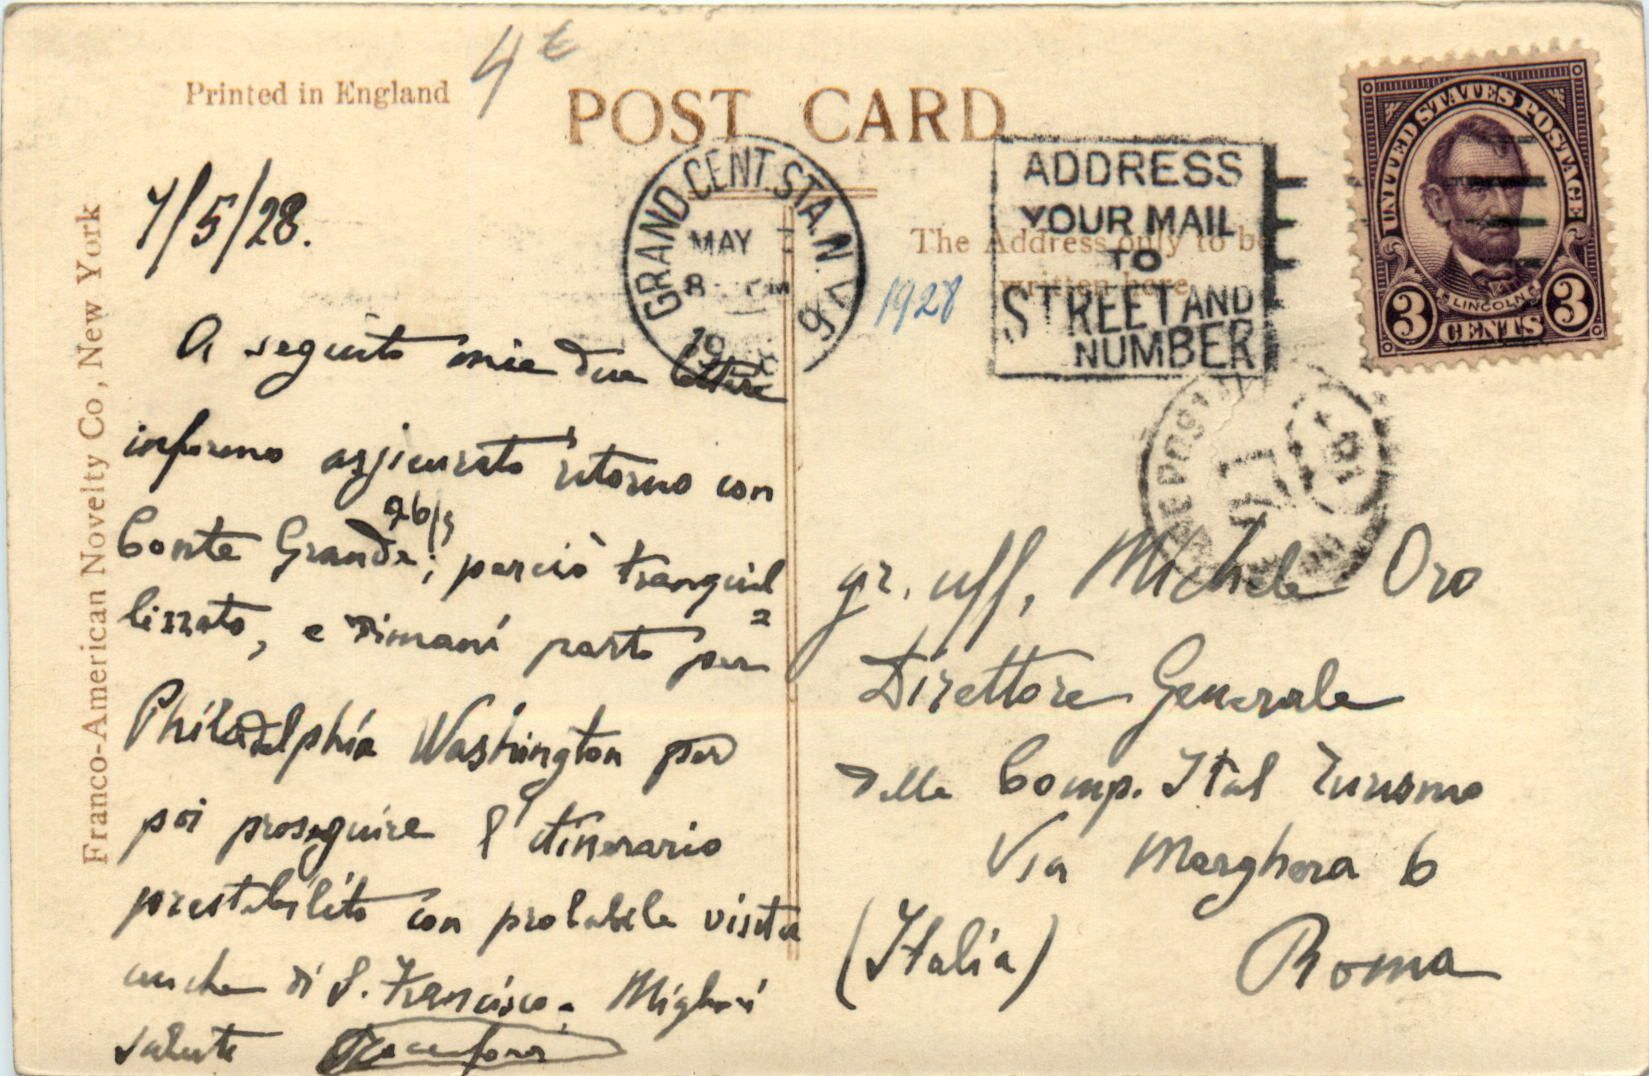 4
Printed in England
POST CARD
Franco-American Novelty Co, New York
The Address only to be
written here
GRAND CENT. STA. N.Y.
MAY 7
8 PM
19
ADDRESS
YOUR MAIL
TO
STREET AND
NUMBER
UNITED STATES POSTAGE
LINCOLN
3 CENTS 3
1928
7/5/28.
A seguito mie due lettere
informo assicurato ritorno con
Conte Grande 26/5; perciò tranquil=
lizzato, e dimani parto per
Philadelphia Washington per
poi proseguire l'itinerario
prestabilito con probabile visita
anche di S. Francisco. Migliori
salute
gr. uff, Michele Oro
Direttore Generale
della Comp. Ital Turismo
Via Marghera 6
(Italia) Roma